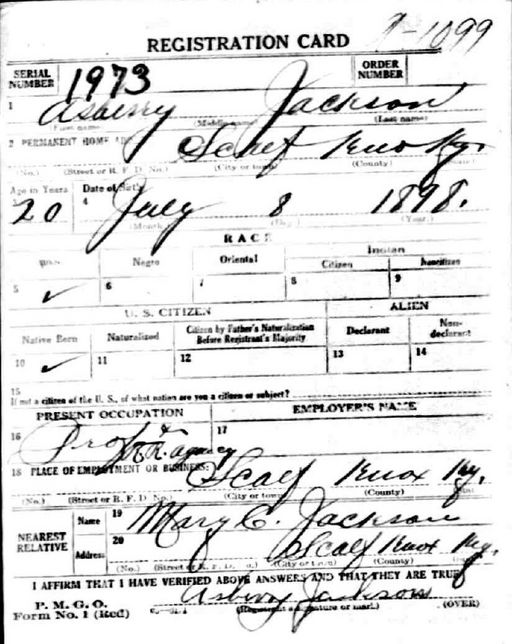 REGISTRATION CARD
SERIAL NUMBER 1973 ORDER NUMBER A-1099
1 Asberry Jackson
(First name) (Middle name) (Last name)
2 PERMANENT HOME ADDRESS: Scalf Knox Ky.
(No.) (Street or R. F. D. No.) (City or town) (County) (State)
Age in Years Date of Birth
3 20 4 July 8 1898.
(Month) (Day) (Year)
RACE
White Negro Oriental Indian
Citizen Noncitizen
5 ✓ 6 7 8 9
U. S. CITIZEN ALIEN
Native Born Naturalized Citizen by Father's Naturalization Before Registrant's Majority Declarant Non-declarant
10 ✓ 11 12 13 14
15
If not a citizen of the U. S., of what nation are you a citizen or subject?
PRESENT OCCUPATION EMPLOYER'S NAME
16 17
R.R. agency
18 PLACE OF EMPLOYMENT OR BUSINESS: Scalf Knox Ky.
(No.) (Street or R. F. D. No.) (City or town) (County) (State)
NEAREST RELATIVE Name 19 Mary C. Jackson
Address 20 Scalf Knox Ky.
(No.) (Street or R. F. D. No.) (City or town) (County) (State)
I AFFIRM THAT I HAVE VERIFIED ABOVE ANSWERS AND THAT THEY ARE TRUE
P. M. G. O.
Form No. 1 (Red) Asberry Jackson
(Registrant's signature or mark.) (OVER)